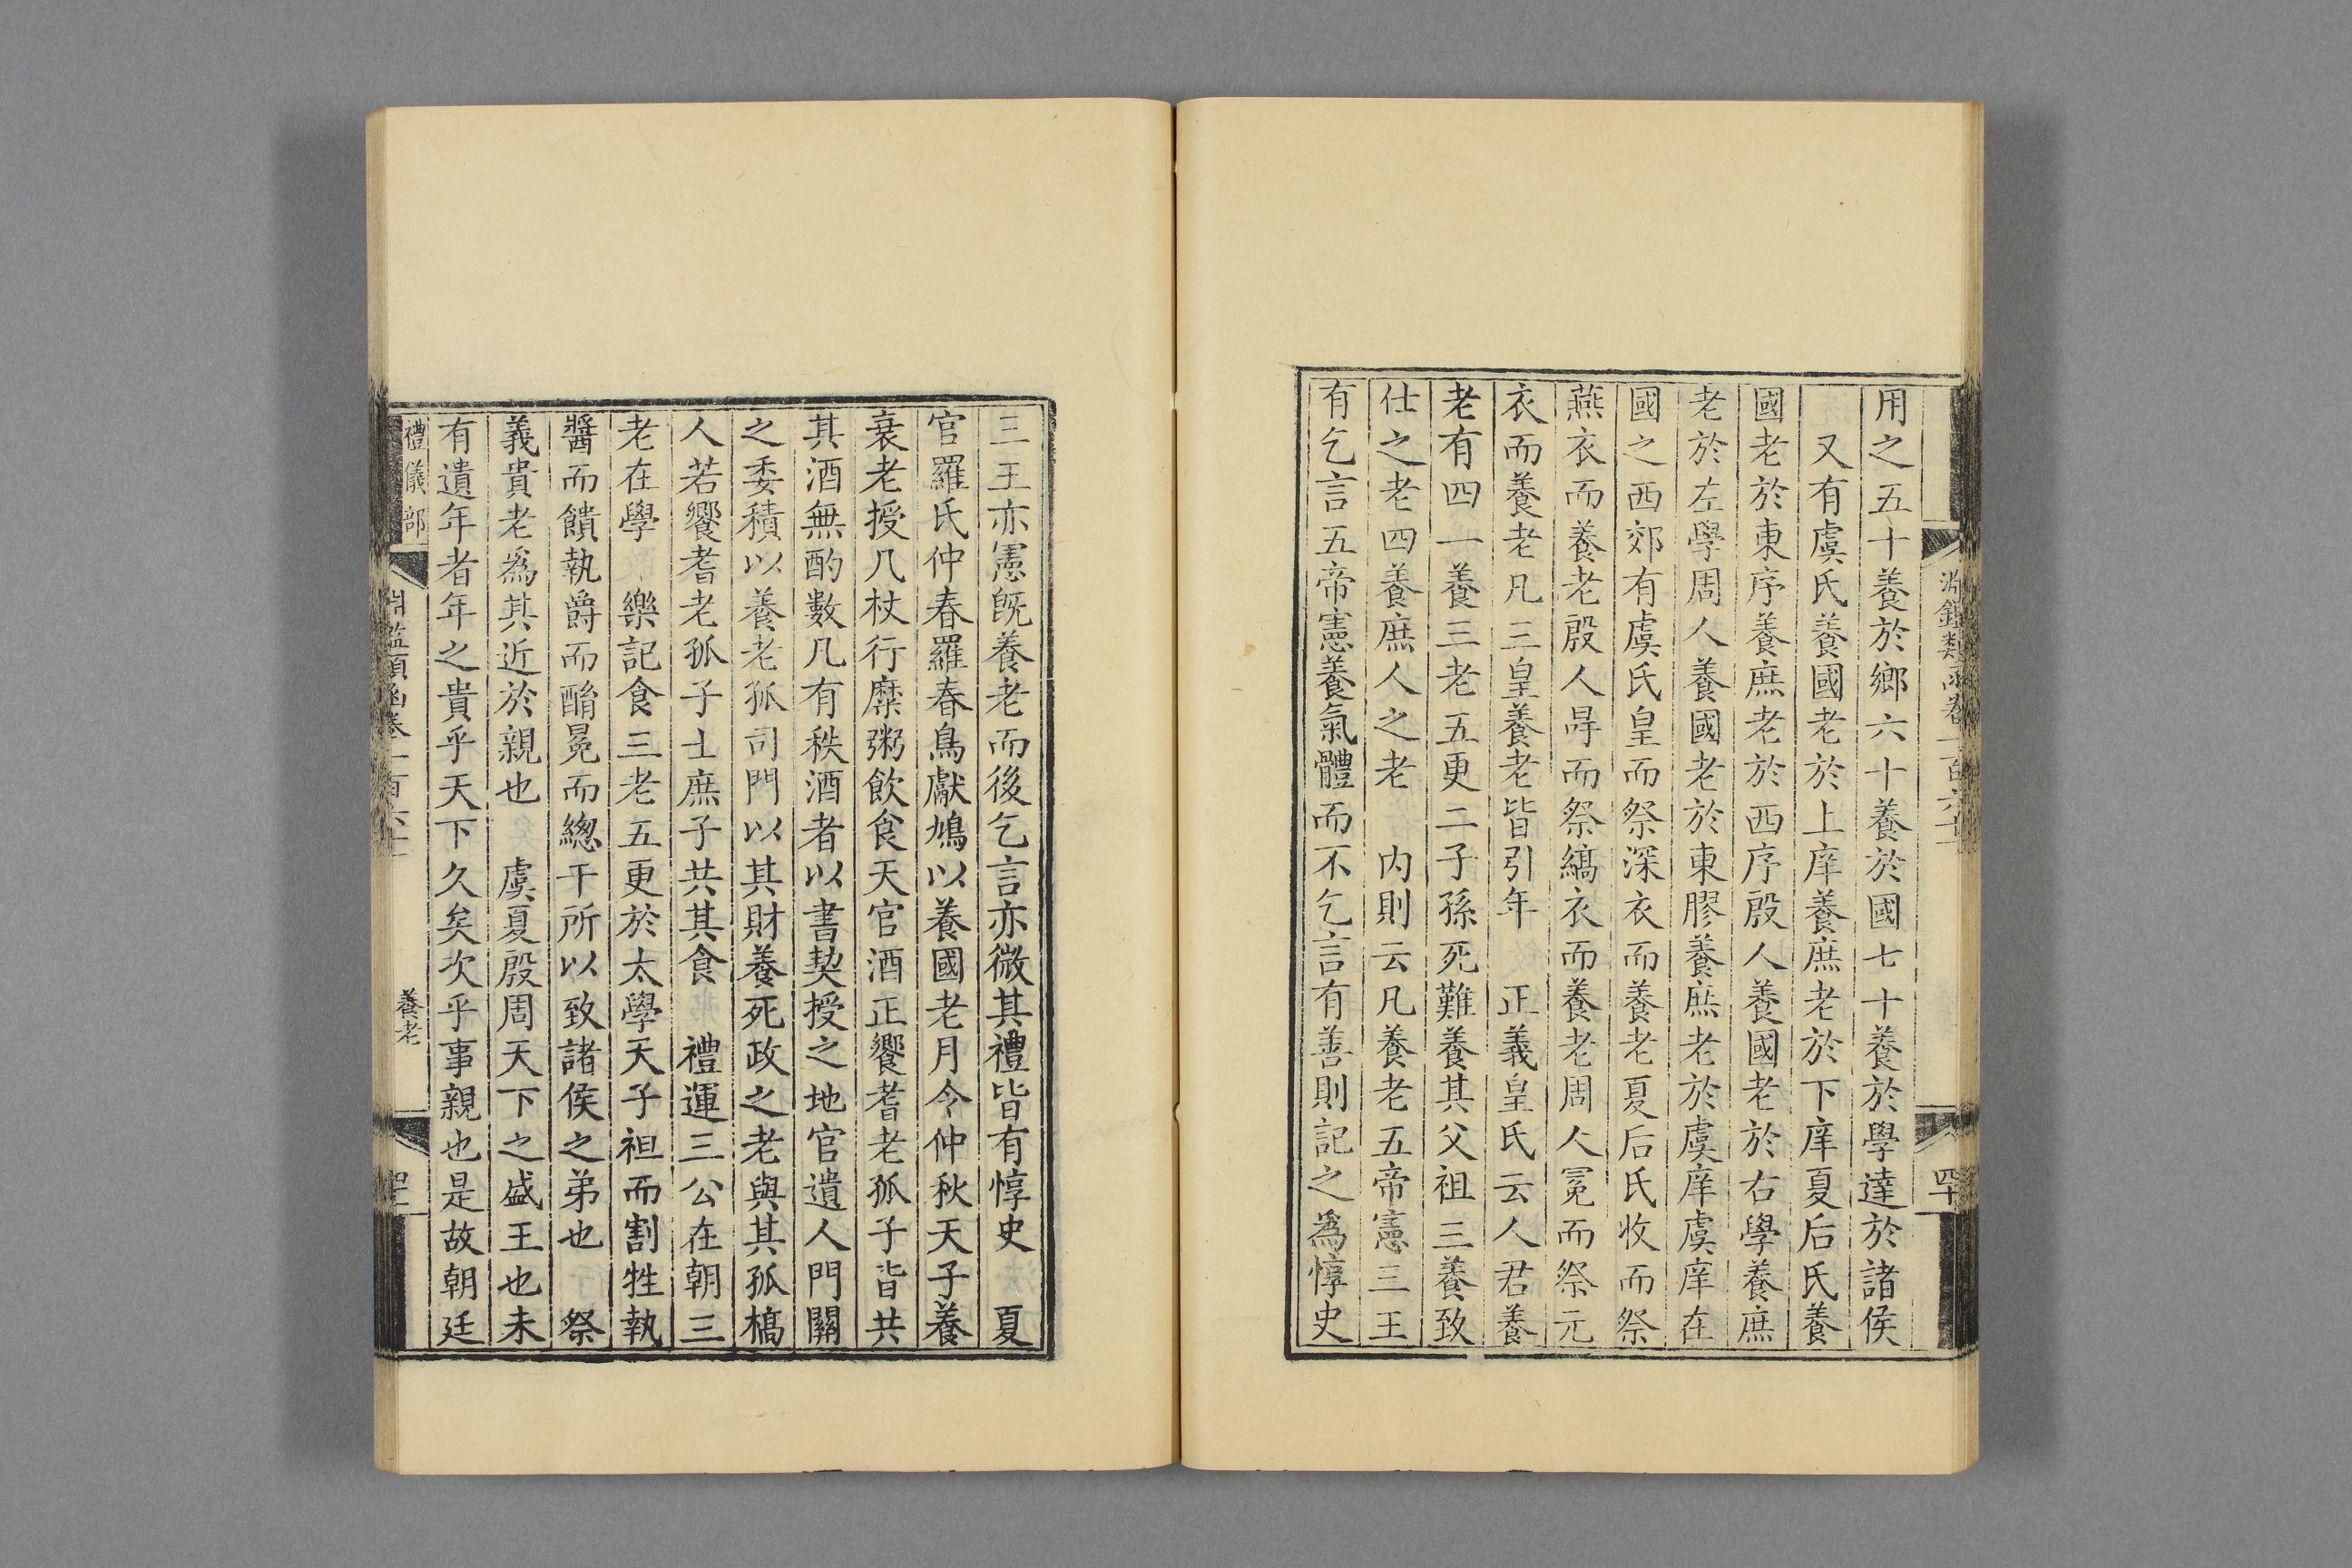 用之五十養於鄉六十養於國七十養於學達於諸侯
又有虞氏養國老於上庠養庶老於下庠夏后氏養
國老於東序養庶老於西序殷人養國老於右學養庶
老於左學周人養國老於東膠養庶老於虞庠虞庠在
國之西郊有虞氏皇而祭深衣而養老夏后氏收而祭
燕衣而養老殷人冔而祭縞衣而養老周人冕而祭元
衣而養老凡三皇養老皆引年　正義皇氏云人君養
老有四一養三老五更二子孫死難養其父祖三養致
仕之老四養庶人之老　内則云凡養老五帝憲三王
有乞言五帝憲養氣體而不乞言有善則記之爲惇史
三王亦憲旣養老而後乞言亦微其禮皆有惇史　夏
官羅氏仲春羅春鳥獻鳩以養國老月令仲秋天子養
衰老授几杖行糜粥飲食天官酒正饗耆老孤子皆共
其酒無酌數凡有秩酒者以書契授之地官遺人門關
之委積以養老孤司門以其財養死政之老與其孤槁
人若饗耆老孤子士庶子共其食　禮運三公在朝三
老在學　樂記食三老五更於太學天子袒而割牲執
醬而饋執爵而酳冕而總干所以致諸侯之弟也　祭
義貴老爲其近於親也　虞夏殷周天下之盛王也未
有遺年者年之貴乎天下久矣次乎事親也是故朝廷
禮儀部
養老